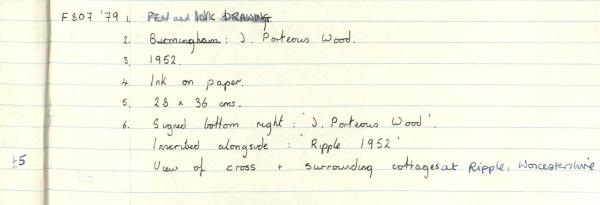 F807 '79 1. PEN and INK DRAWING
2. Burmingham : J. Porteous Wood.
3. 1952.
4. Ink on paper.
5. 28 x 36 cms.
6. Signed bottom right : 'J. Porteous Wood'.
Inscribed alongside : 'Ripple 1952'
View of cross + surrounding cottages at Ripple, Worcestershire